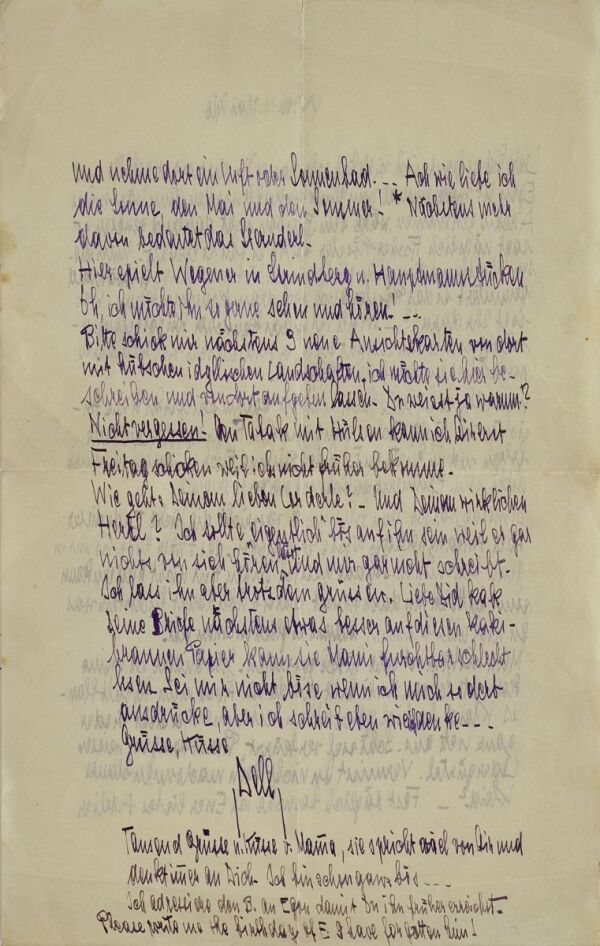 und nehme dort ein Luft oder Sonnenbad. -- Ach wie liebe ich
die Sonne den Mai und den Sommer! * Nächstens mehr
davon bedeutet das Sternderl.-
Hier spielt Wegener in Strindberg u. Hauptmannstücken
Oh, ich möchte ihn so gerne sehen und hören! --
Bitte schick mir nächstens 9 neue Ansichtskarten von dort
mit hübschen idyllischen Landschaften, ich möchte sie hier be-
schreiben und von dort aufgeben lassen. Du weisst ja warum?
Nicht vergessen! Den Tabak mit Hülsen kann ich Dir erst
Freitag schicken weil ich nicht früher bekomme.-
Wie geht's Deinem lieben ? - Und Deinem wirklichen
? Ich sollte eigentlich bös auf ihn sein weil er gar
nichts von sich hören lässt und mir gar nicht schreibt.-
Ich lass ihn aber trotzdem grüssen. Liebe
Deine Briefe nächstens etwas besser auf diesen
braunen Papier kann sie Mami furchtbar schlecht
lesen. Sei mir nicht böse wenn ich mich so dort
ausdrücke, aber ich schreib eben wie ich denke---
Grüsse, Küsse
Dell
Tausend Grüsse u. Küsse v. Mama, sie spricht von Dir und
denkt immer an Dich. Ich bin schon ganz bös ---
Ich adressiere den B. an Egon damit Du ihn früher erreichst.-
Please write me the birthday of E. I have forgotten him!